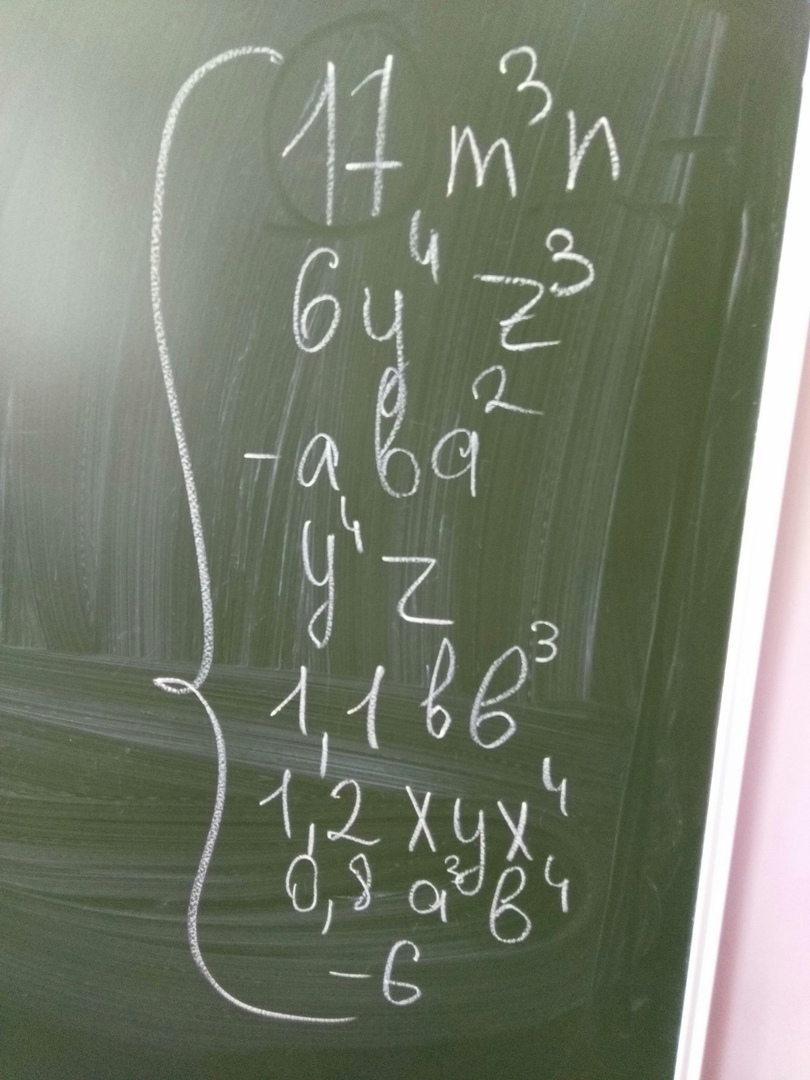 17 m³n
6y⁴ z³
-aba²
y⁴z
1,1 bb³
1,2 xyx⁴
0,8 a³b⁴
-6